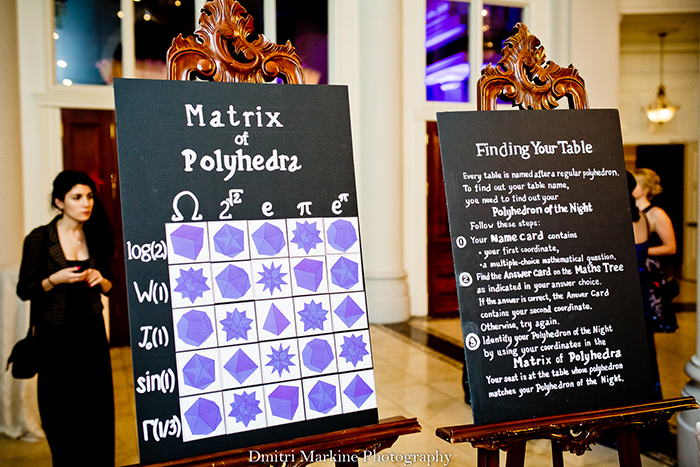 Matrix
of
Polyhedra
Ω 2^√2 e π e^π
log(2)
W(1)
J₀(1)
sin(1)
Γ(1/3)
Finding Your Table
Every table is named after a regular polyhedron.
To find out your table name,
you need to find out your
Polyhedron of the Night
Follow these steps:
1 Your Name Card contains
• your first coordinate,
• a multiple-choice mathematical question.
2 Find the Answer Card on the Maths Tree
as indicated in your answer choice.
If the answer is correct, the Answer Card
contains your second coordinate.
Otherwise, try again.
3 Identify your Polyhedron of the Night
by using your coordinates in the
Matrix of Polyhedra
Your seat is at the table whose polyhedron
matches your Polyhedron of the Night.
Dmitri Markine Photography